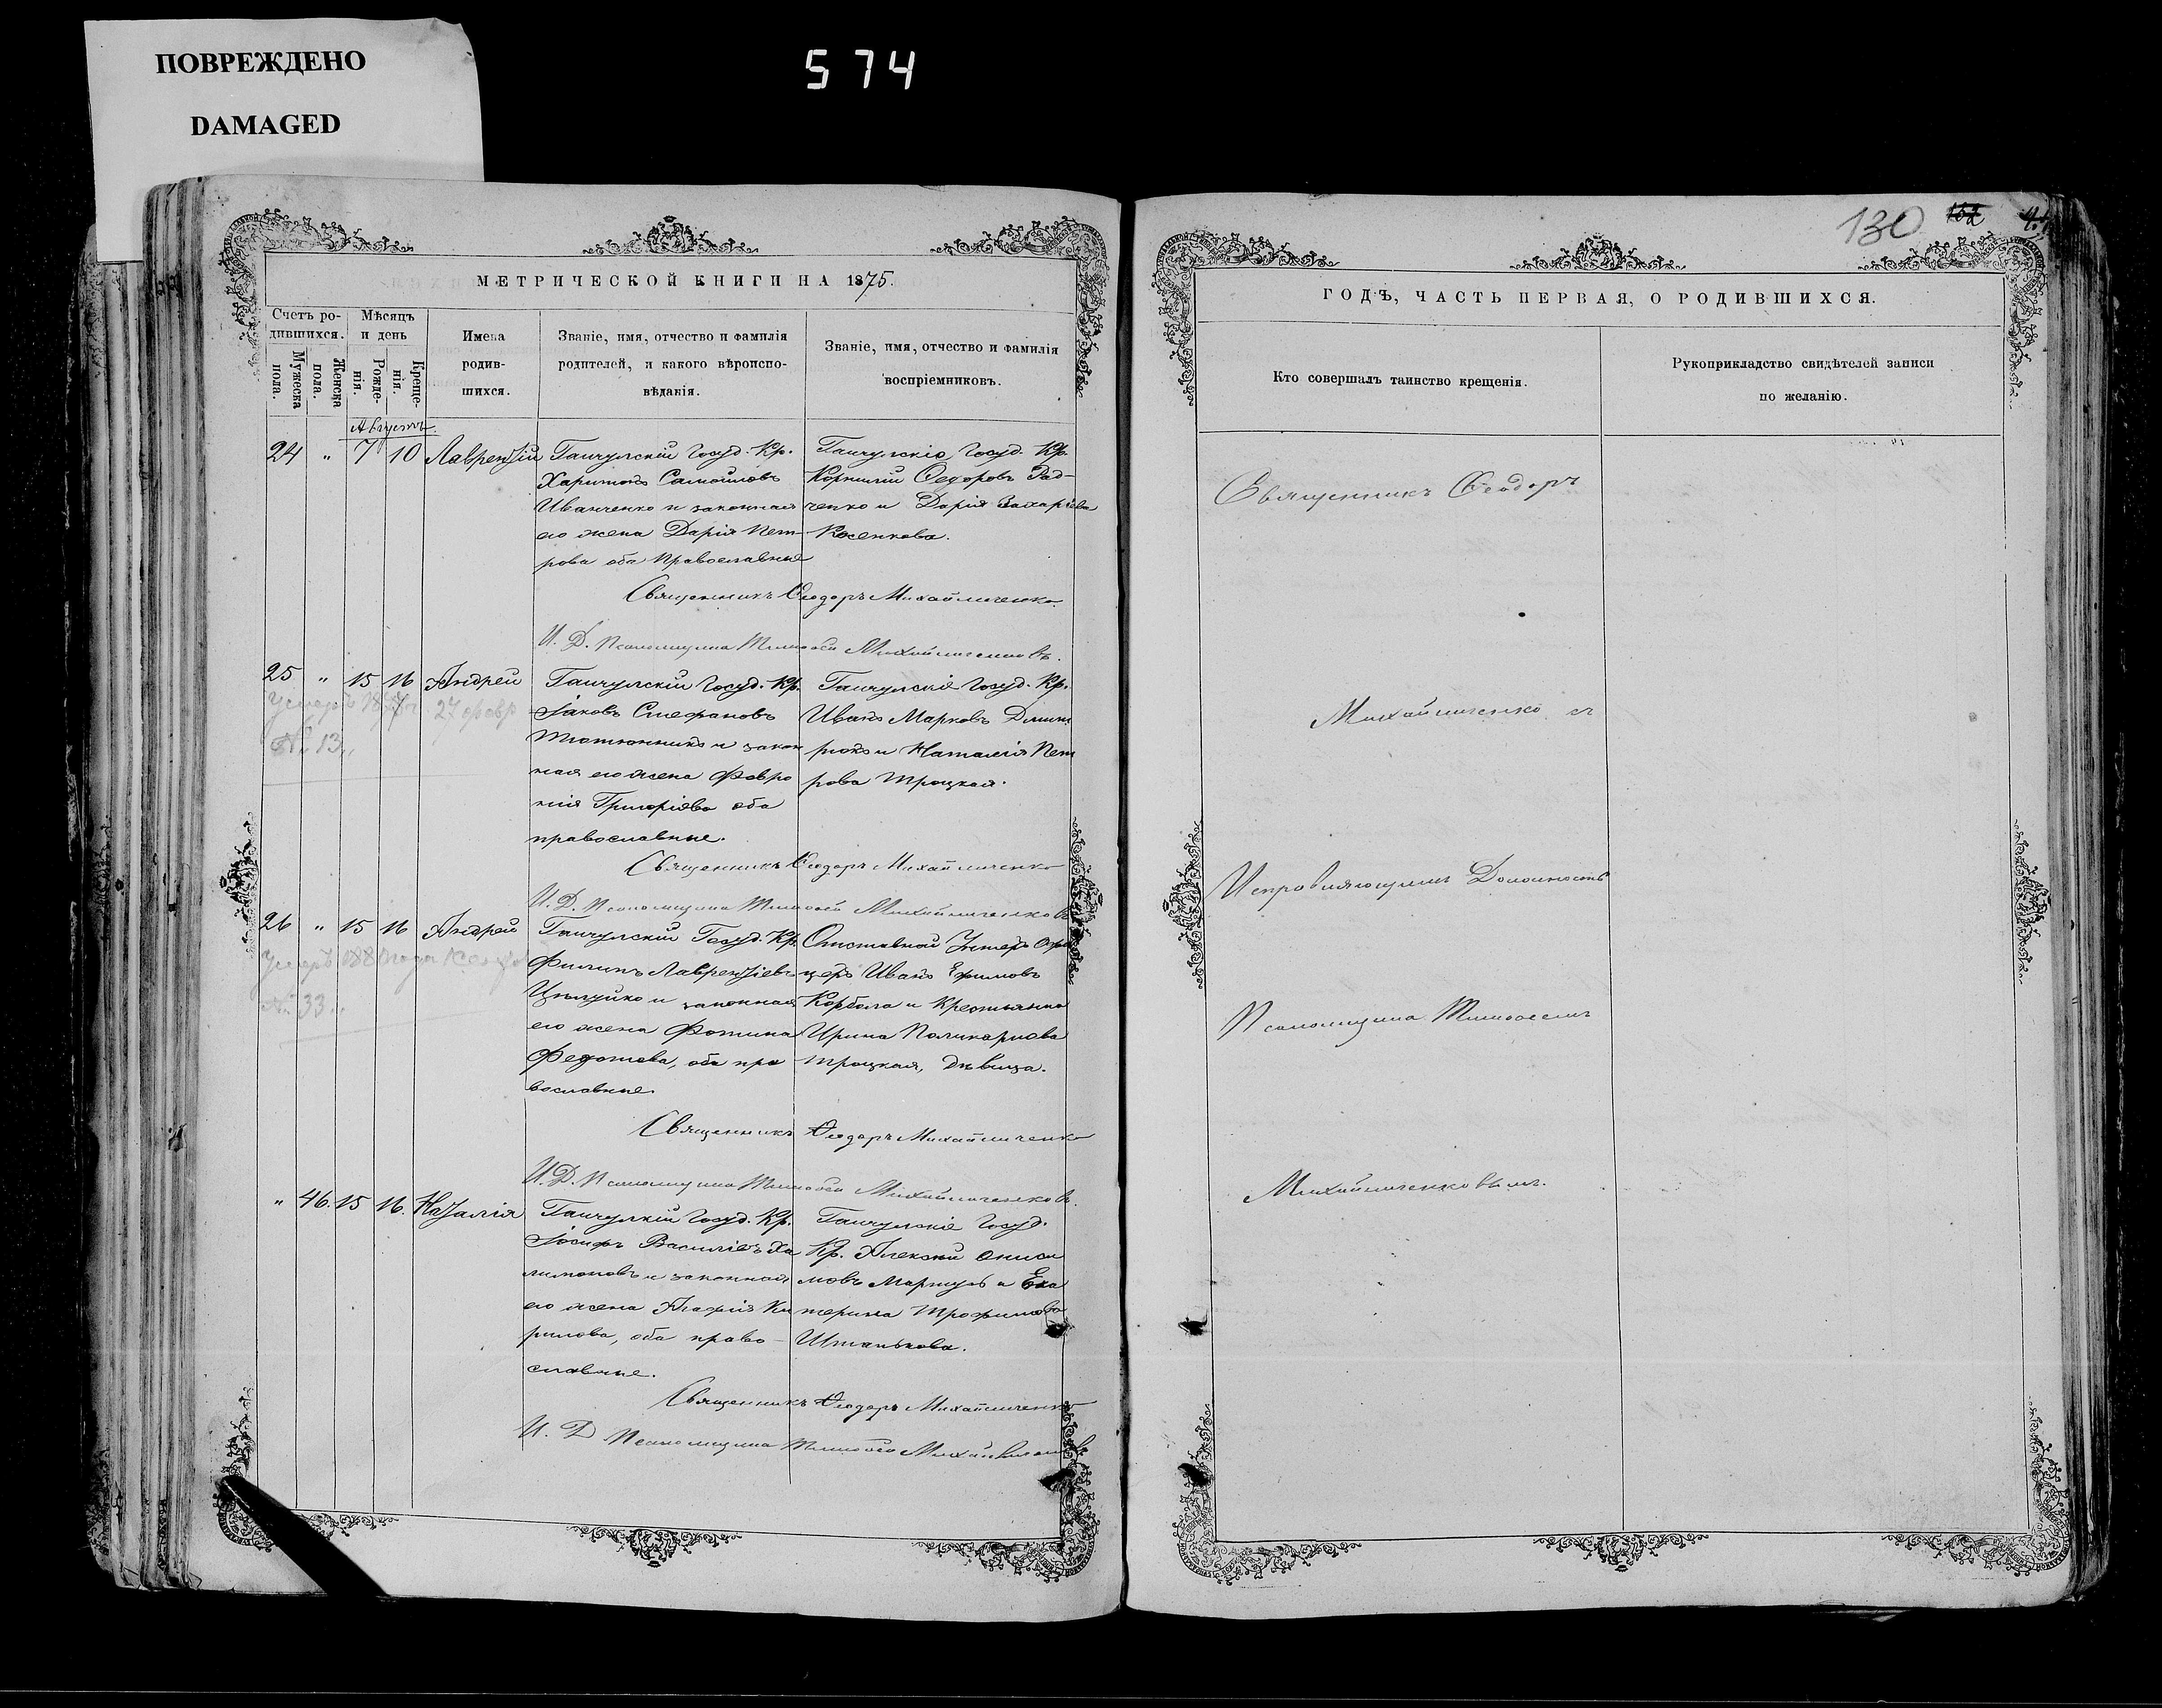 ПОВРЕЖДЕНО
DAMAGED
574
МЕТРИЧЕСКОЙ КНИГИ НА 1875.
Счетъ ро-
дившихся.
Мужеска
пола.
Женска
пола.
Мѣсяцъ
и день
Рожде-
нія.
Креще-
нія.
Имена
родив-
шихся.
Званіе, имя, отчество и фамилія
родителей, и какого вѣроиспо-
вѣданія.
Званіе, имя, отчество и фамилія
воспріемниковъ.
Августъ
24 " 7 10 Лаврентій
Гайчулскій Госуд. Кр.
Харитонъ Самойловъ
Иванченко и законная
его жена Дарія Пет-
рова оба православные
Гайчулскіе Госуд. Кр.
Корнилій Федоровъ Рад-
ченко и Дарія Захаріева
Косенкова.
Священникъ Ѳеодоръ Михайличенко.
И. Д. Псаломщика Тимоѳей Михайличенковъ.
25 " 15 16 Андрей
умеръ 27 февр
№ 13
Гайчулскій Госуд. Кр.
Іаковъ Стефановъ
Тютюнникъ и закон
ная его жена Февро
нія Григоріева оба
православные.
Гайчулскіе Госуд. Кр.
Иванъ Марковъ Дмит
рюкъ и Наталія Пет
рова Троцкая.
Священникъ Ѳеодоръ Михайличенко
И. Д. Псаломщика Тимоѳей Михайличенковъ
26 " 15 16 Андрей
умеръ года
№ 33
Гайчулскій Госуд. Кр.
Филипъ Лаврентіевъ
Цыпуйко и законная
его жена Фотина
Федотова, оба пра
вославные.
Отставной Унтеръ Офи
церъ Иванъ Ефимовъ
Корбала и Крестьянка
Ирина Поликарпова
Троцкая, дѣвица.
Священникъ Ѳеодоръ Михайличенко
И. Д. Псаломщика Тимоѳей Михайличенковъ.
" 46. 15 16. Наталія
Гайчулкій Госуд. Кр.
Іосифъ Василіевъ Ха
лимоновъ и законная
его жена Агафія Ки
рилова, оба право-
славные.
Гайчулскіе Госуд.
Кр. Алексій Ониси
мовъ и Ека
терина Трофимова
Штанькова.
Священникъ Ѳеодоръ Михайличенко
И. Д Псаломщика Тимоѳей
130
ГОДѢ, ЧАСТЬ ПЕРВАЯ, О РОДИВШИХСЯ.
Кто совершалъ таинство крещенія.
Рукоприкладство свидѣтелей записи
по желанію.
Священникъ Ѳеодоръ
Михайличенко съ
Исправляющимъ Должность
Псаломщика Тимоѳеемъ
Михайличенковымъ.